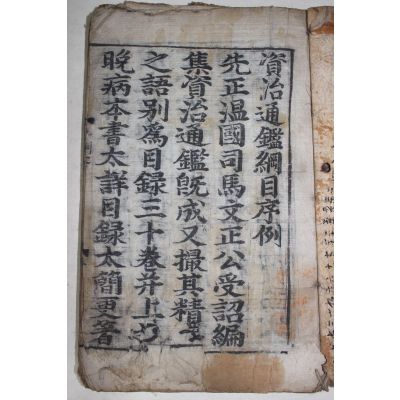 資治通鑑綱目序例
先正温國司馬文正公受詔編
集資治通鑑既成又撮其精要
之語别爲目録三十卷并上之
晩病本書太詳目録太簡更著